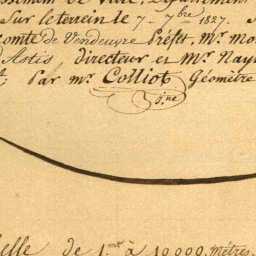 Département
Sur le terrein le 7. 7.bre 1827.
comte de Vendeuvre Préfet, Mr. Mo
Astis, directeur et Mr. Nay
Par mr. Colliot Géomètre
j.ne
elle de 1.mt à 10000. mètres